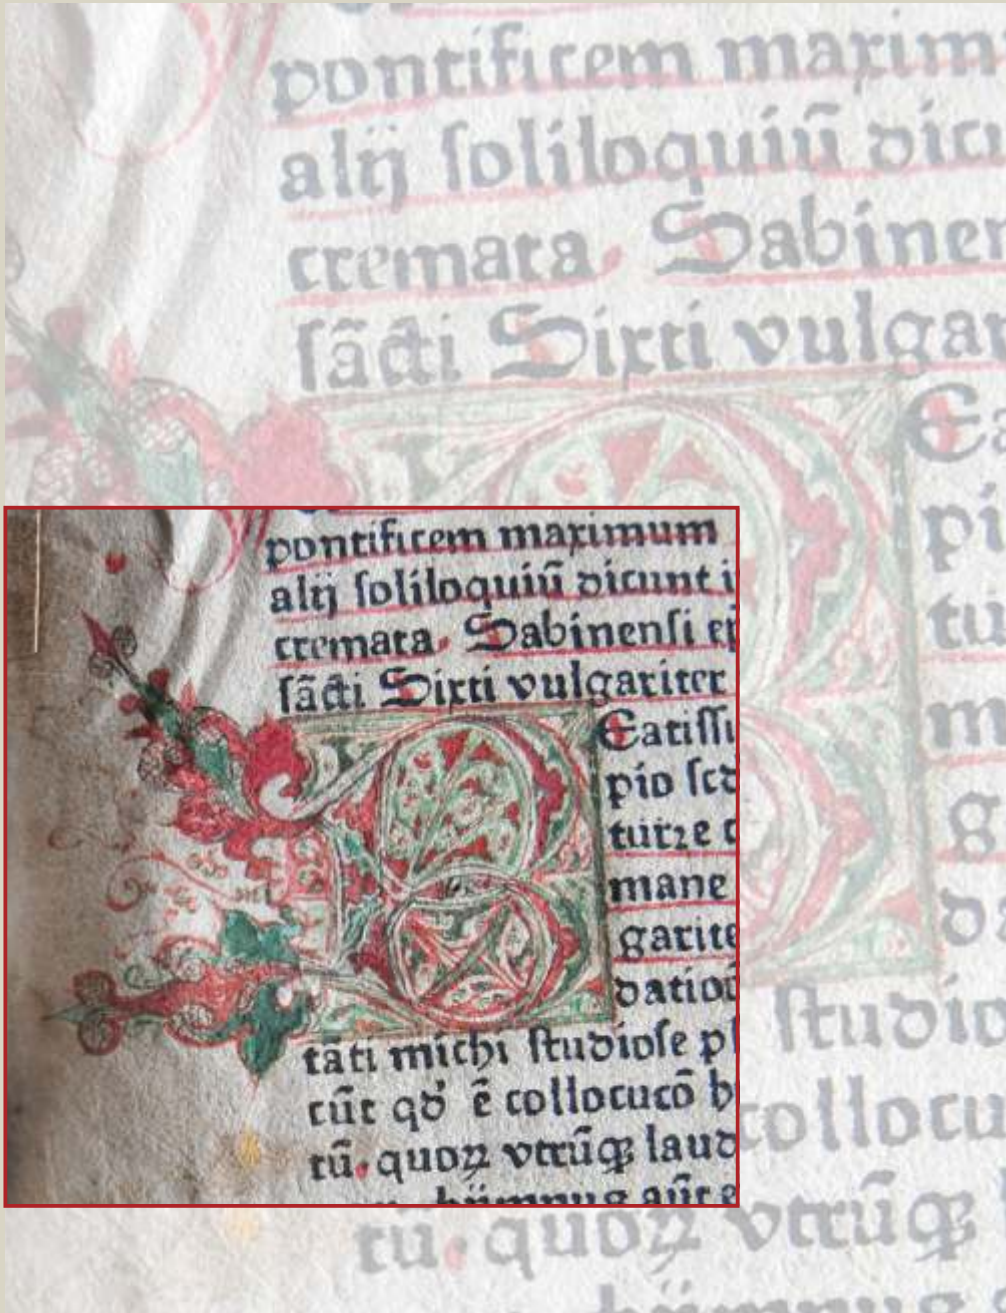 pontificem maxim
alij ſoliloquiū dicu
cremata. Sabinen
ſācti Sixti vulgar
Ea
pi
tu
m
g
da
ſtudio
collocu
tū. quoꝝ vtrūqꝫ
pontificem maximum
alij ſoliloquiū dicunt i
cremata. Sabinenſi ep
ſācti Sixti vulgariter
Eatiſſi
pio ſcd
turꝛe c
mane
garite
datioē
tāti michi ſtudioſe p
cūt qd ē collocutō h
tū. quoꝝ vtrūqꝫ laud
hijmnus aūt e